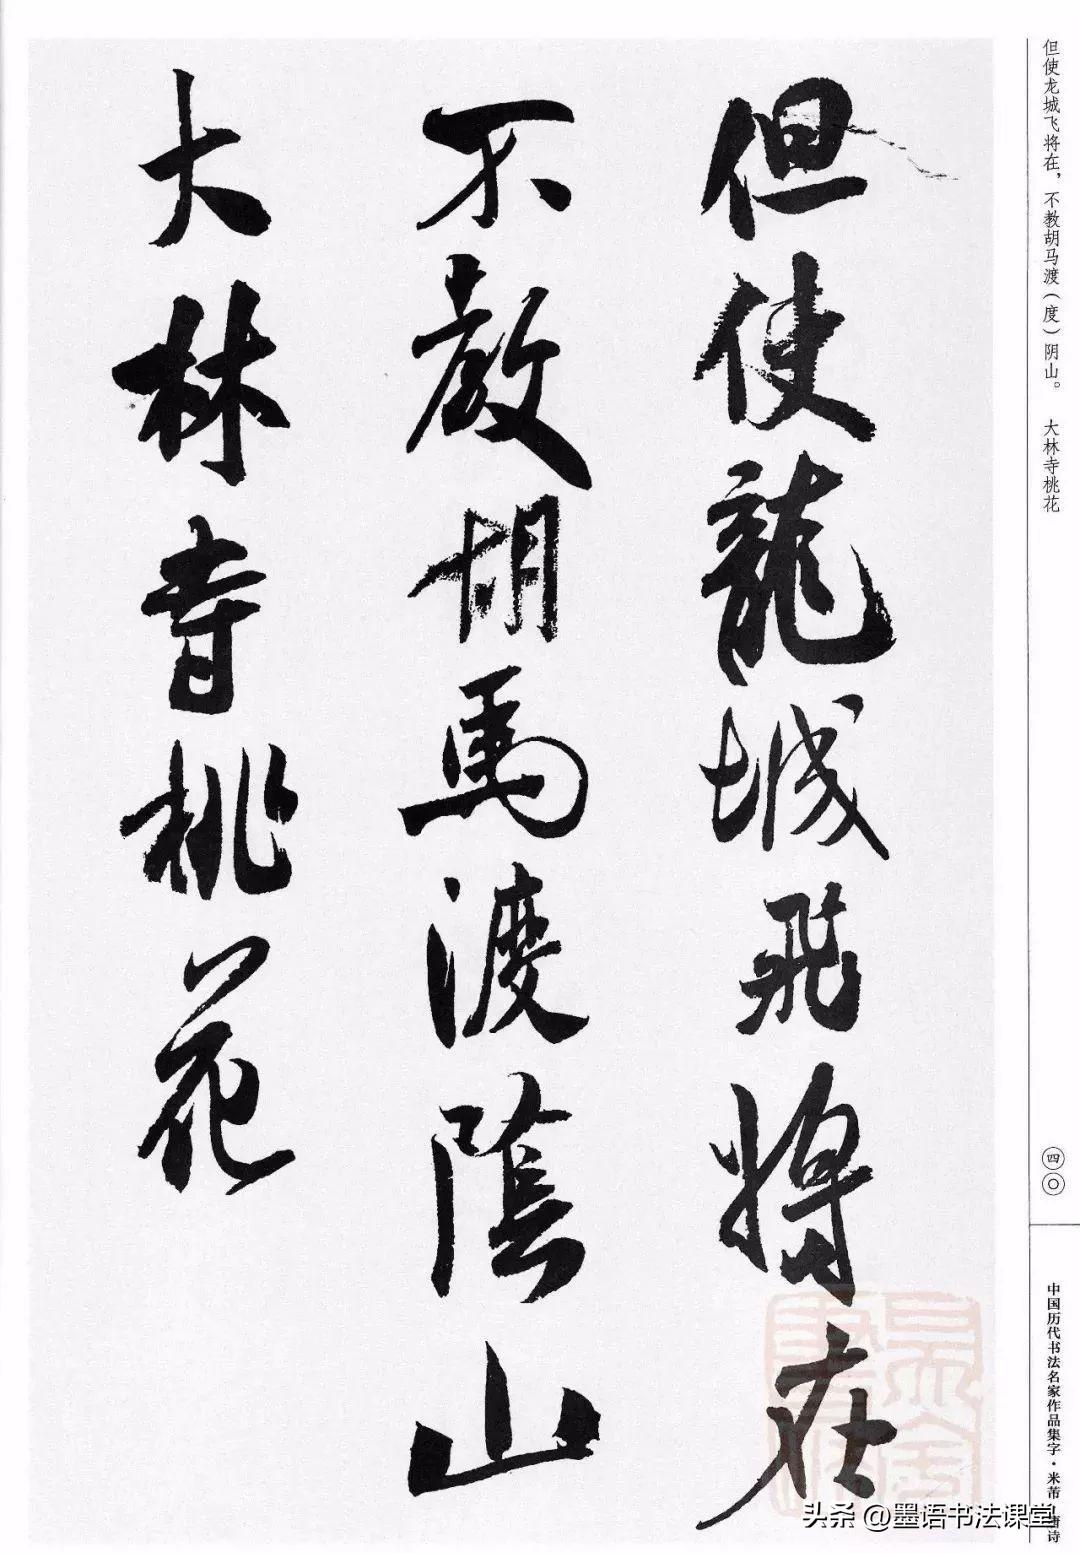 但使龙城飞将在，不教胡马渡（度）阴山。　大林寺桃花
四〇
中国历代书法名家作品集字·米芾 唐诗
但使龍城飛将在
不教胡馬渡陰山
大林寺桃花
头条 @墨语书法课堂